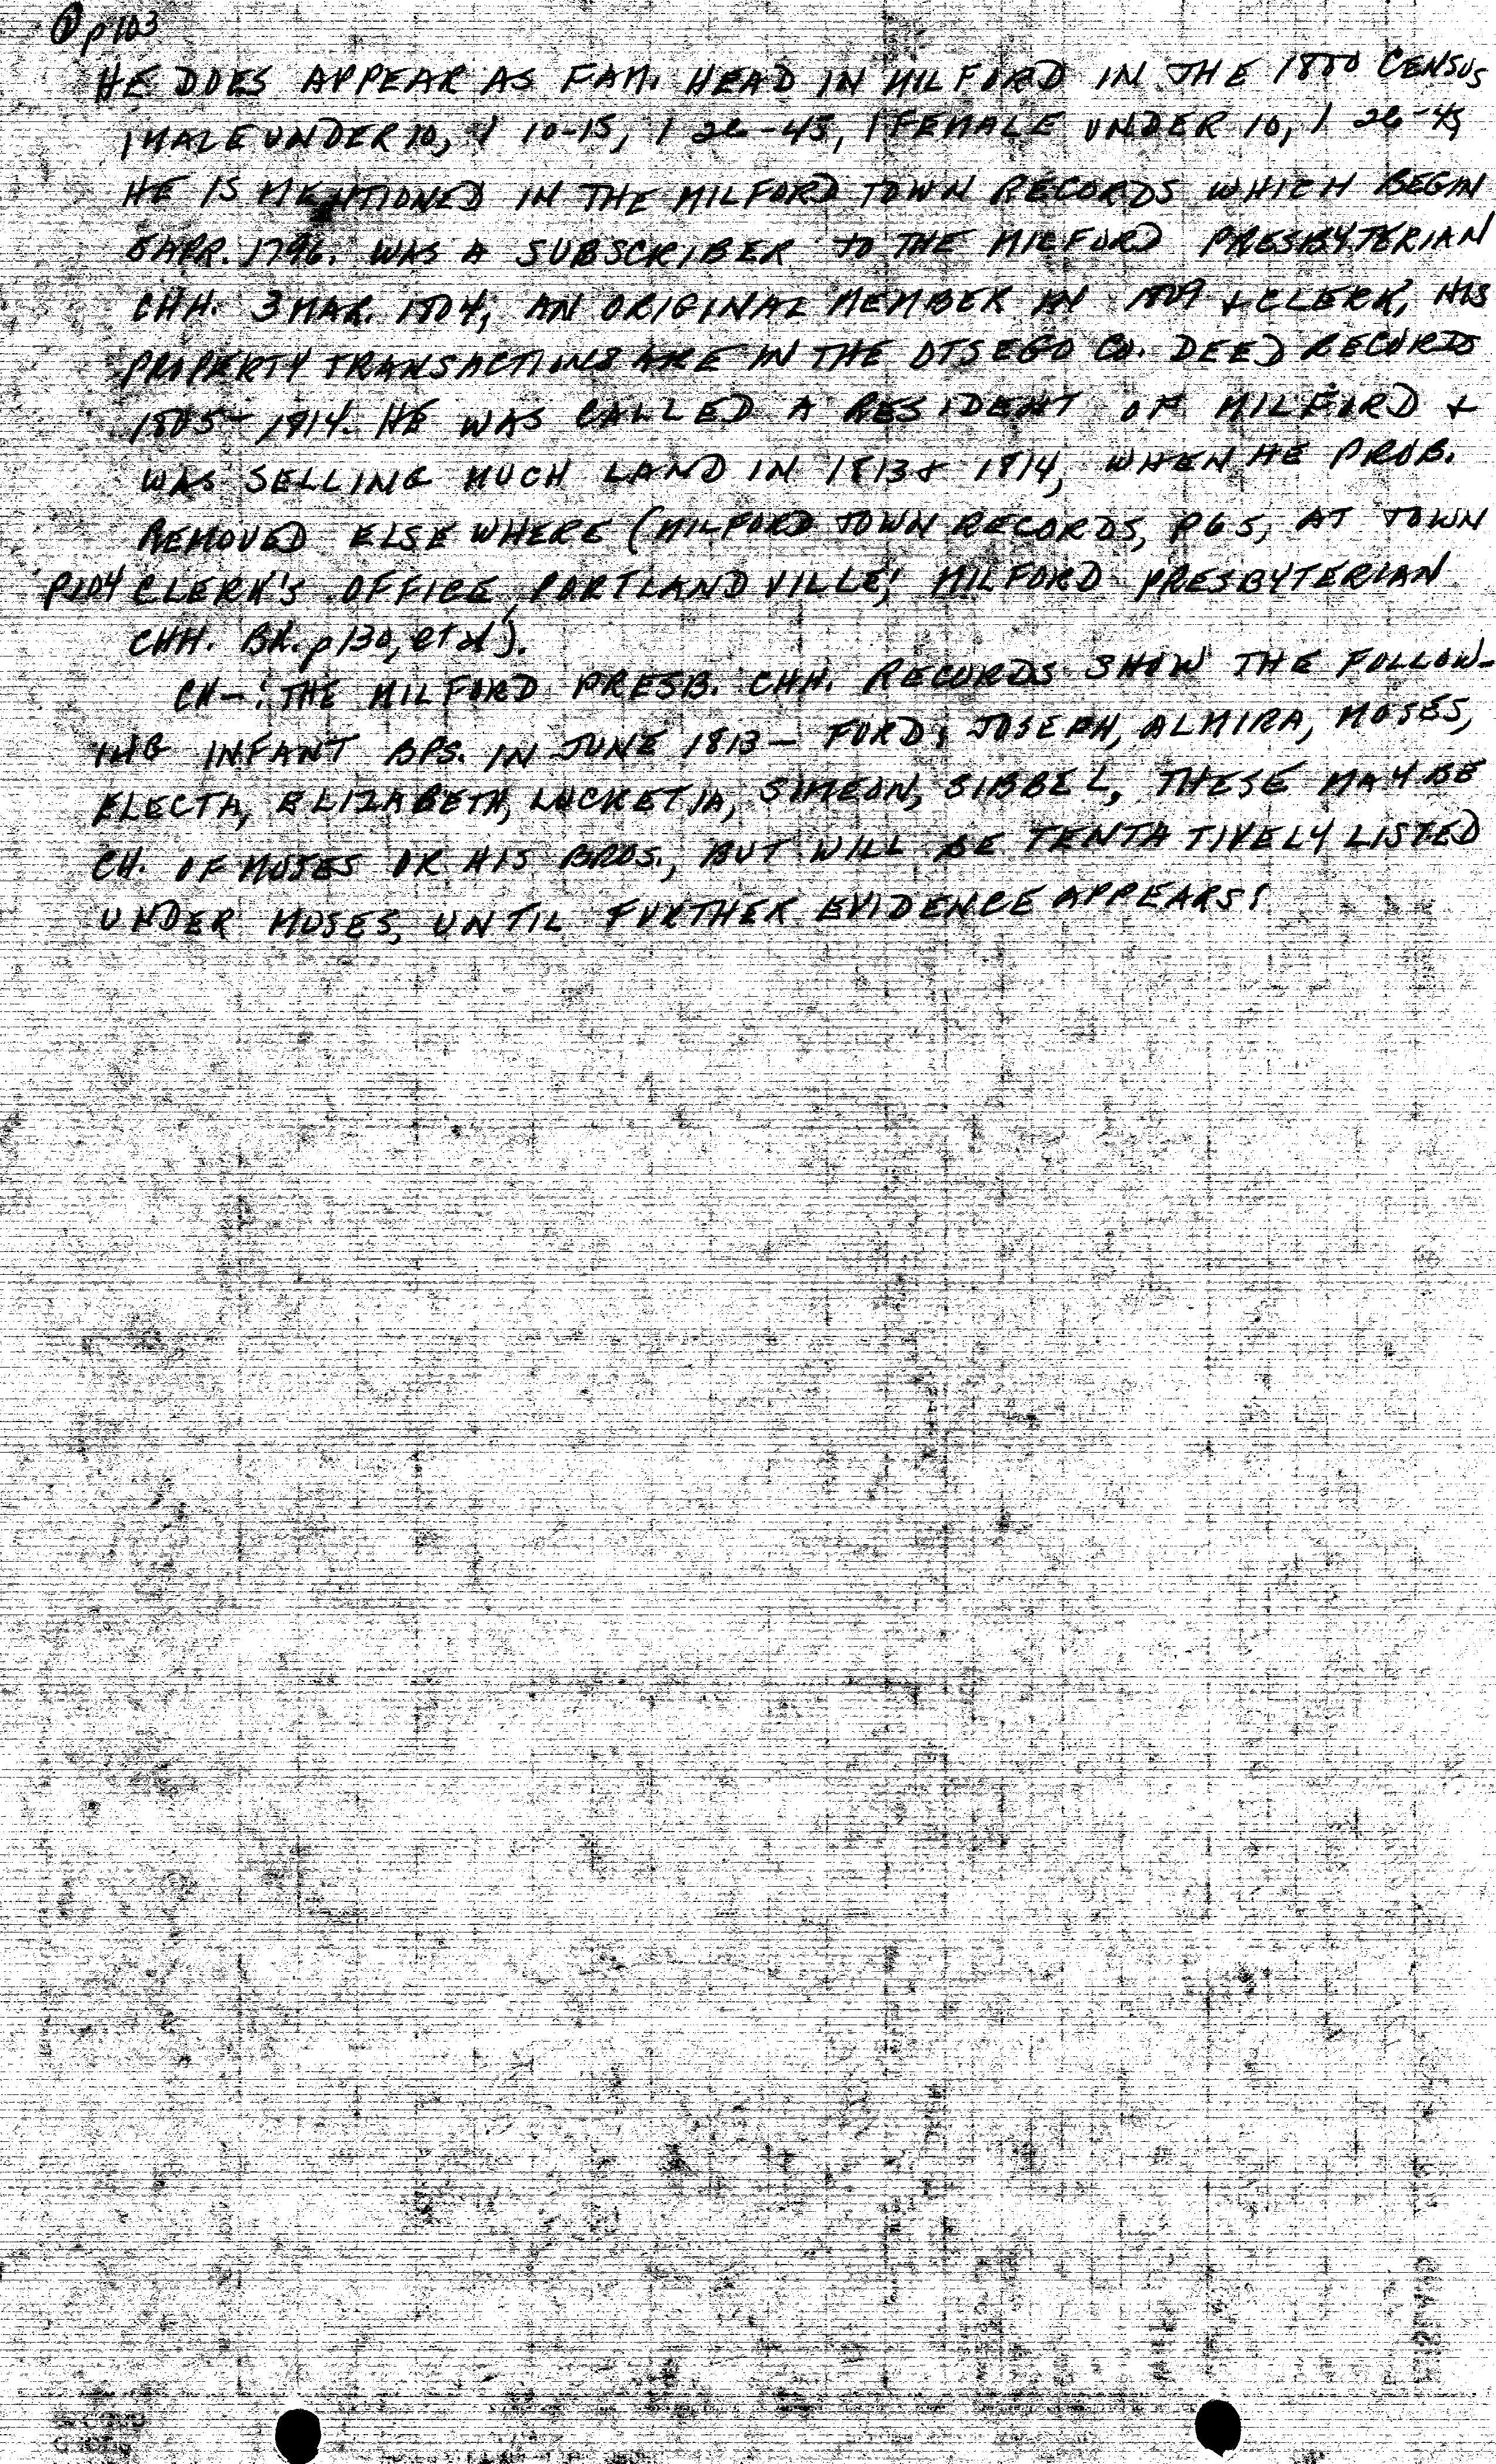 ① p103
HE DOES APPEAR AS FAM. HEAD IN MILFORD IN THE 1800 CENSUS
1 MALE UNDER 10, 1 10-15, 1 26-45, 1 FEMALE UNDER 10, 1 26-45
HE IS MENTIONED IN THE MILFORD TOWN RECORDS WHICH BEGIN
5 APR. 1796. WAS A SUBSCRIBER TO THE MILFORD PRESBYTERIAN
CHH. 3 MAR. 1804, AN ORIGINAL MEMBER IN 1809 & CLERK, HIS
PROPERTY TRANSACTIONS ARE IN THE OTSEGO CO. DEED RECORDS
1805-1814. HE WAS CALLED A RESIDENT OF MILFORD &
WAS SELLING MUCH LAND IN 1813 & 1814, WHEN HE PROB.
REMOVED ELSEWHERE (MILFORD TOWN RECORDS, PG 5, AT TOWN
P104 CLERK'S OFFICE, PORTLANDVILLE; MILFORD PRESBYTERIAN
CHH. BK. p 130, et al).
CH-: THE MILFORD PRESB. CHH. RECORDS SHOW THE FOLLOW-
ING INFANT BPS. IN JUNE 1813 - FORD: JOSEPH, ALMIRA, MOSES,
ELECTA, ELIZABETH, LUCRETIA, SIMEON, SIBBEL, THESE MAY BE
CH. OF MOSES OR HIS BROS., BUT WILL BE TENTATIVELY LISTED
UNDER MOSES, UNTIL FURTHER EVIDENCE APPEARS!